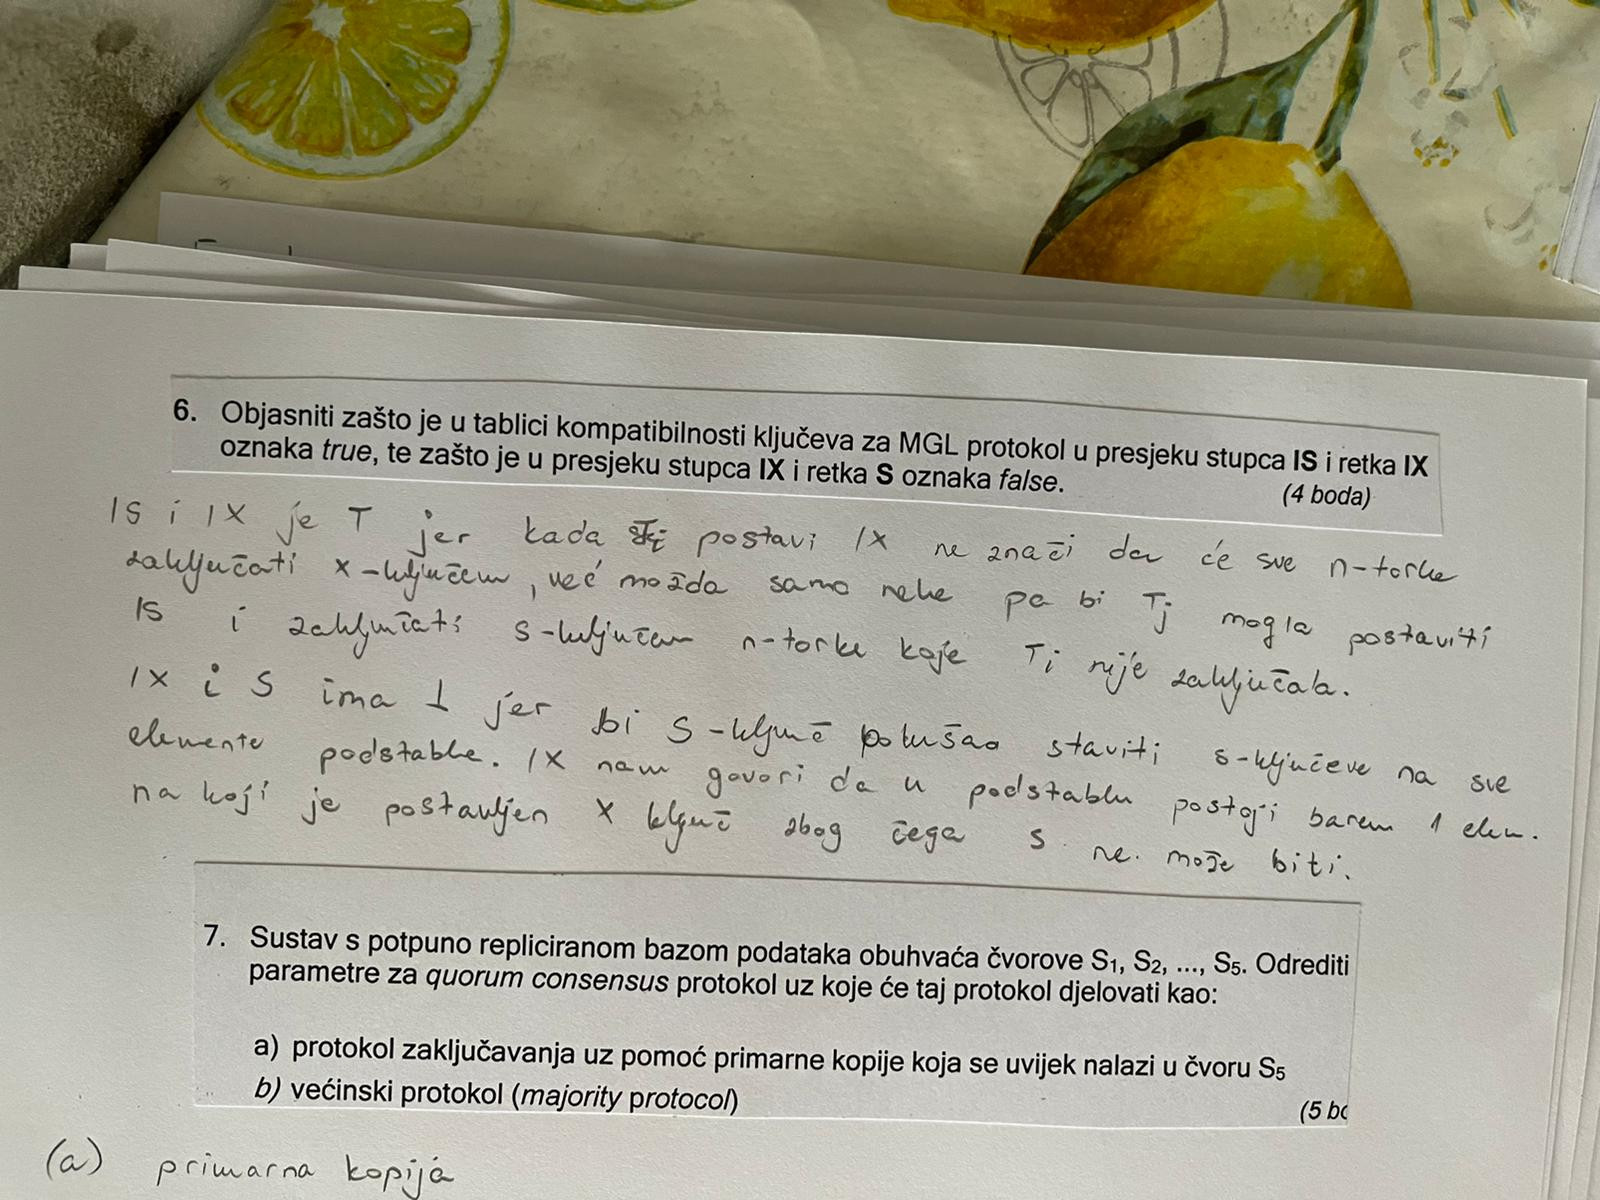 6. Objasniti zašto je u tablici kompatibilnosti ključeva za MGL protokol u presjeku stupca IS i retka IX
oznaka true, te zašto je u presjeku stupca IX i retka S oznaka false.
(4 boda)
IS i IX je T jer kada postavi IX ne znači da će sve n-torke
zaključati x-ključem, već možda samo neke pa bi Tj mogla postaviti
IS i zaključati s-ključem n-torke koje Ti nije zaključala.
IX i S ima ⊥ jer bi S-ključ pokušao staviti s-ključeve na sve
elemente podstabla. IX nam govori da u podstablu postoji barem 1 elem.
na koji je postavljen X ključ zbog čega S ne može biti.
7. Sustav s potpuno repliciranom bazom podataka obuhvaća čvorove S1, S2, ..., S5. Odrediti
parametre za quorum consensus protokol uz koje će taj protokol djelovati kao:
a) protokol zaključavanja uz pomoć primarne kopije koja se uvijek nalazi u čvoru S5
b) većinski protokol (majority protocol)
(5 bo
(a) primarna kopija